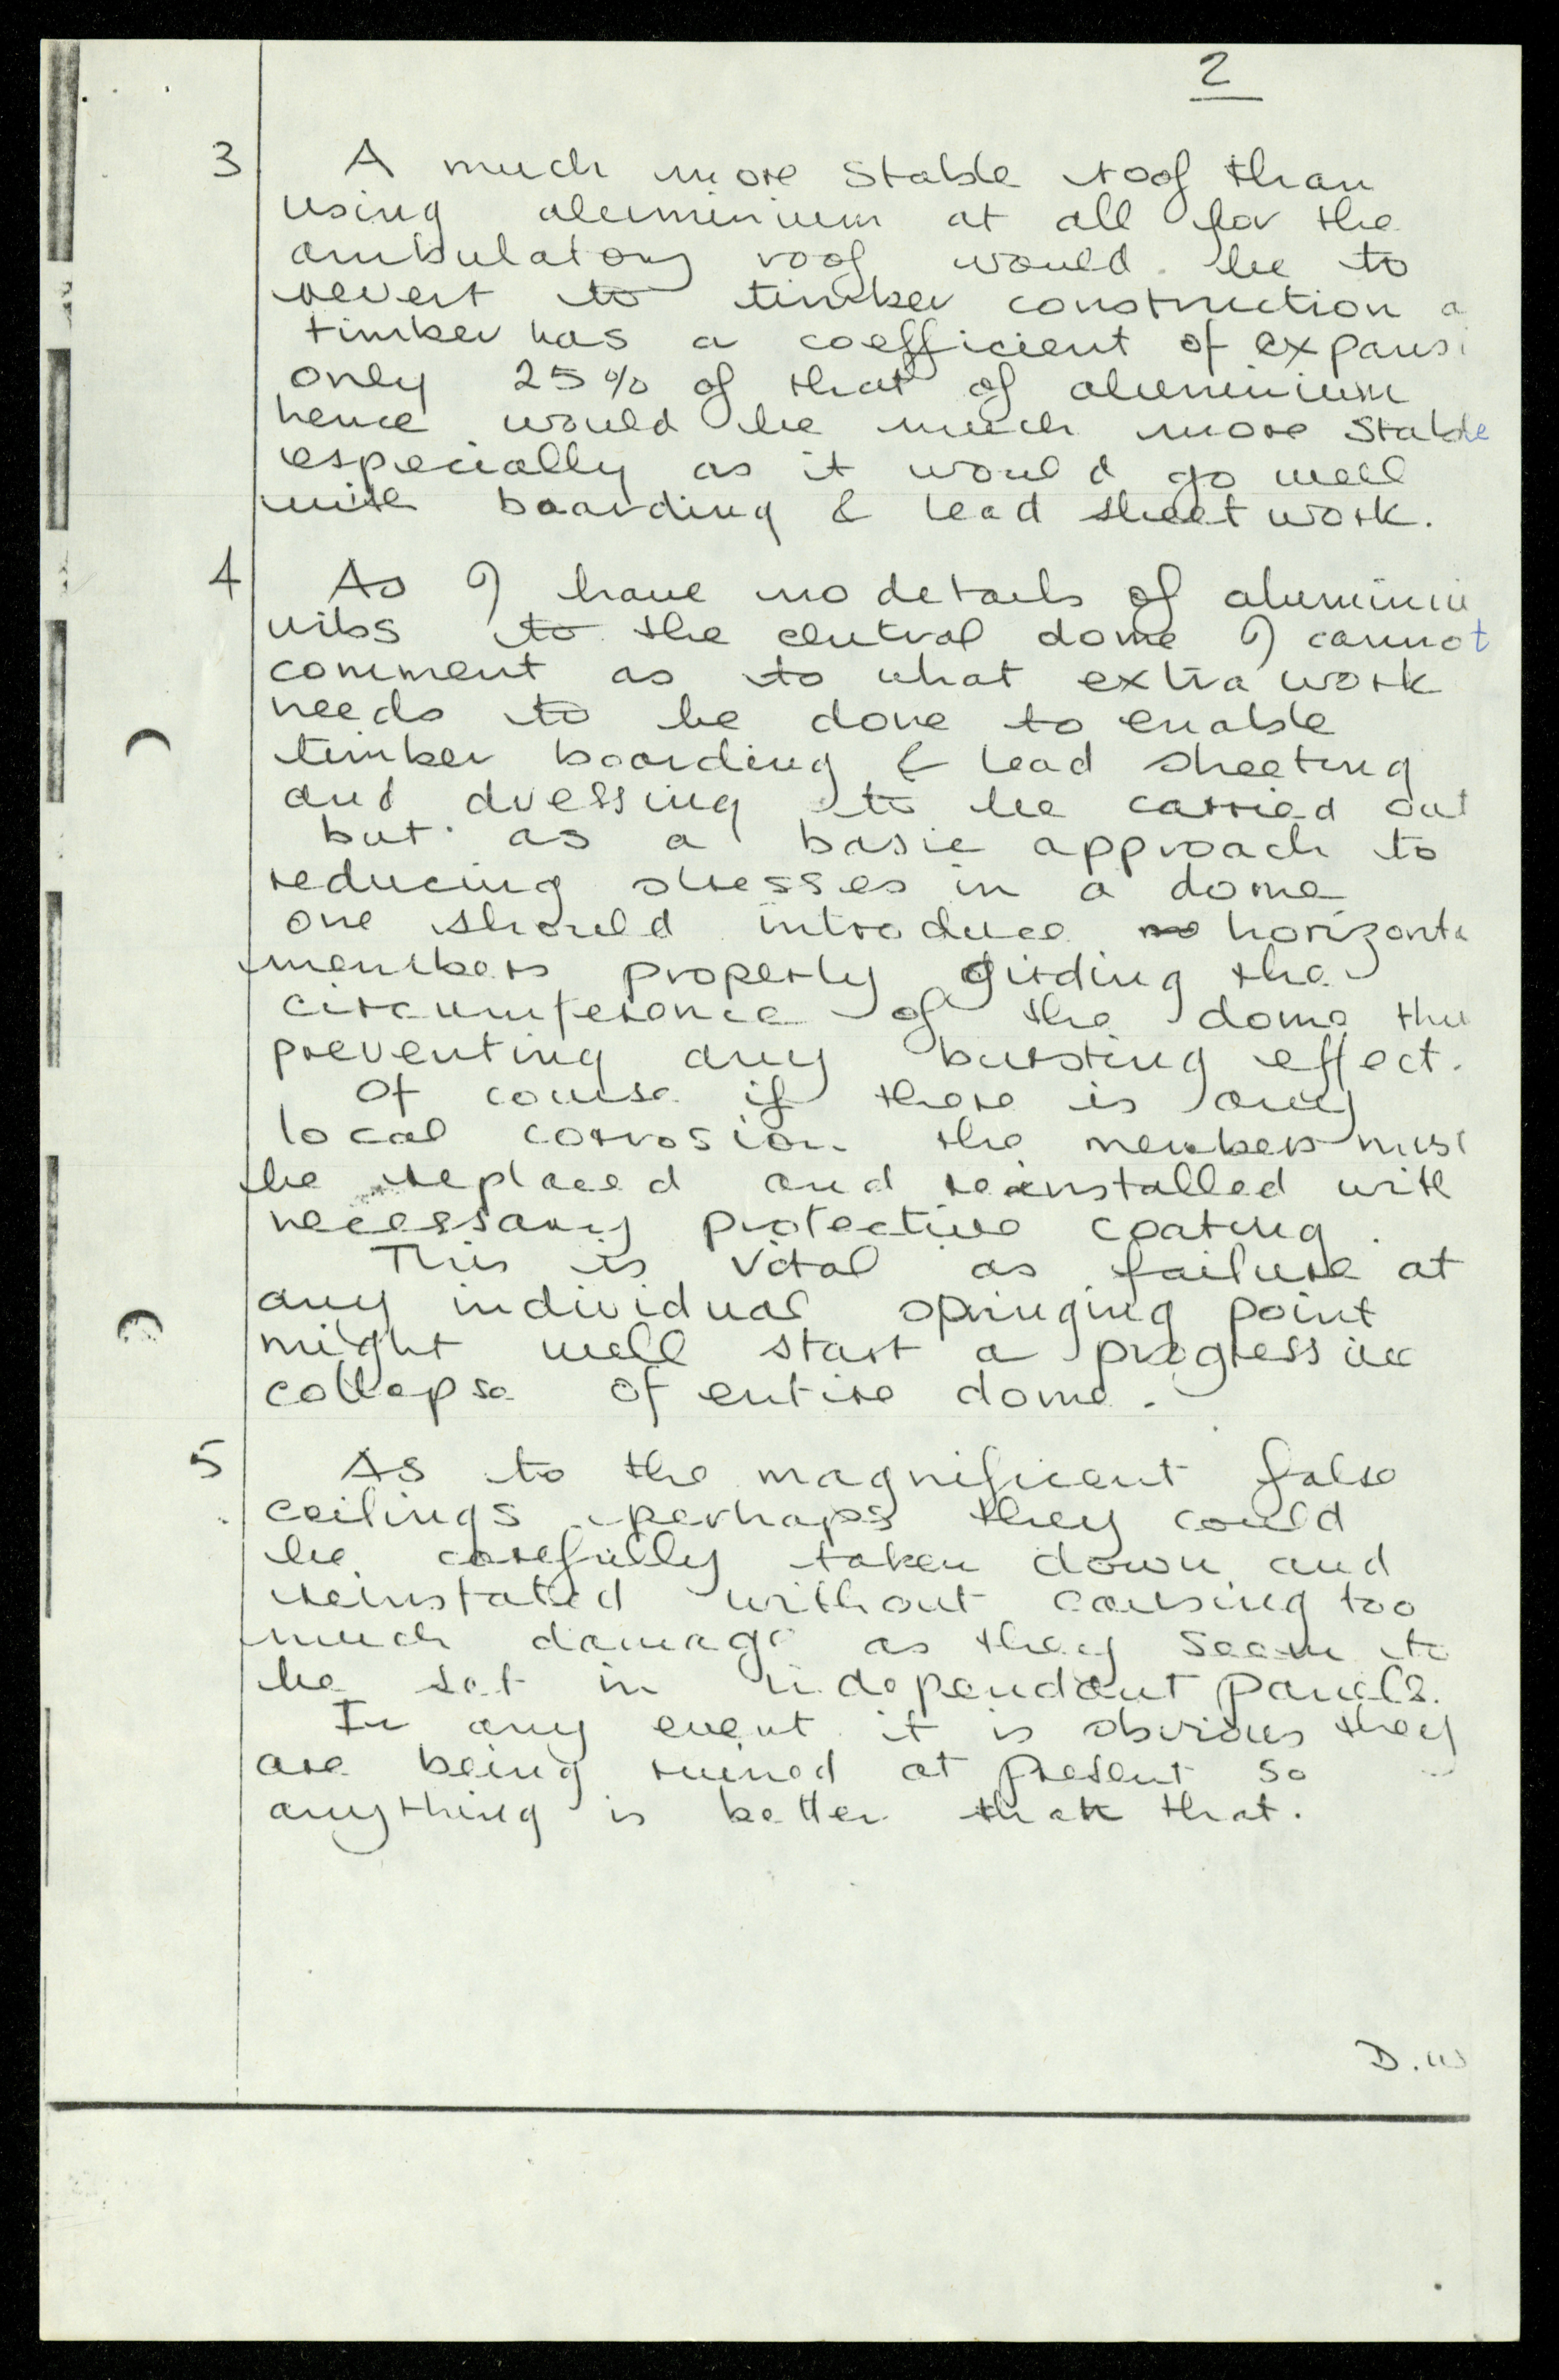 2
3 A much more stable roof than
using aluminium at all for the
ambulatory roof would be to
revert to timber construction a
timber has a coefficient of expansi
only 25% of that of aluminium
hence would be much more stable
especially as it would go well
with boarding & lead sheet work.
4 As I have no details of aluminiu
ribs to the central dome I cannot
comment as to what extra work
needs to be done to enable
timber boarding & lead sheeting
and dressing to be carried out
but as a basic approach to
reducing stresses in a dome
one should introduce horizonta
members properly girding the
circumference of the dome thu
preventing any bursting effect.
Of course if there is any
local corrosion the members must
be replaced and reinstalled with
necessary protective coating.
This is vital as failure at
any individual springing point
might well start a progressive
collapse of entire dome.
5 As to the magnificent false
ceilings perhaps they could
be carefully taken down and
reinstated without causing too
much damage as they seem to
be set in independant panels.
In any event it is obvious they
are being ruined at present so
anything is better than that.
D.W